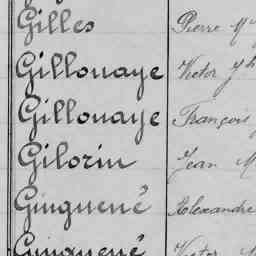 Gilles Pierre
Gillouaye Victor
Gillouaye François
Gilorin Jean M
Ginguené Alexandre
Ginguené Victor